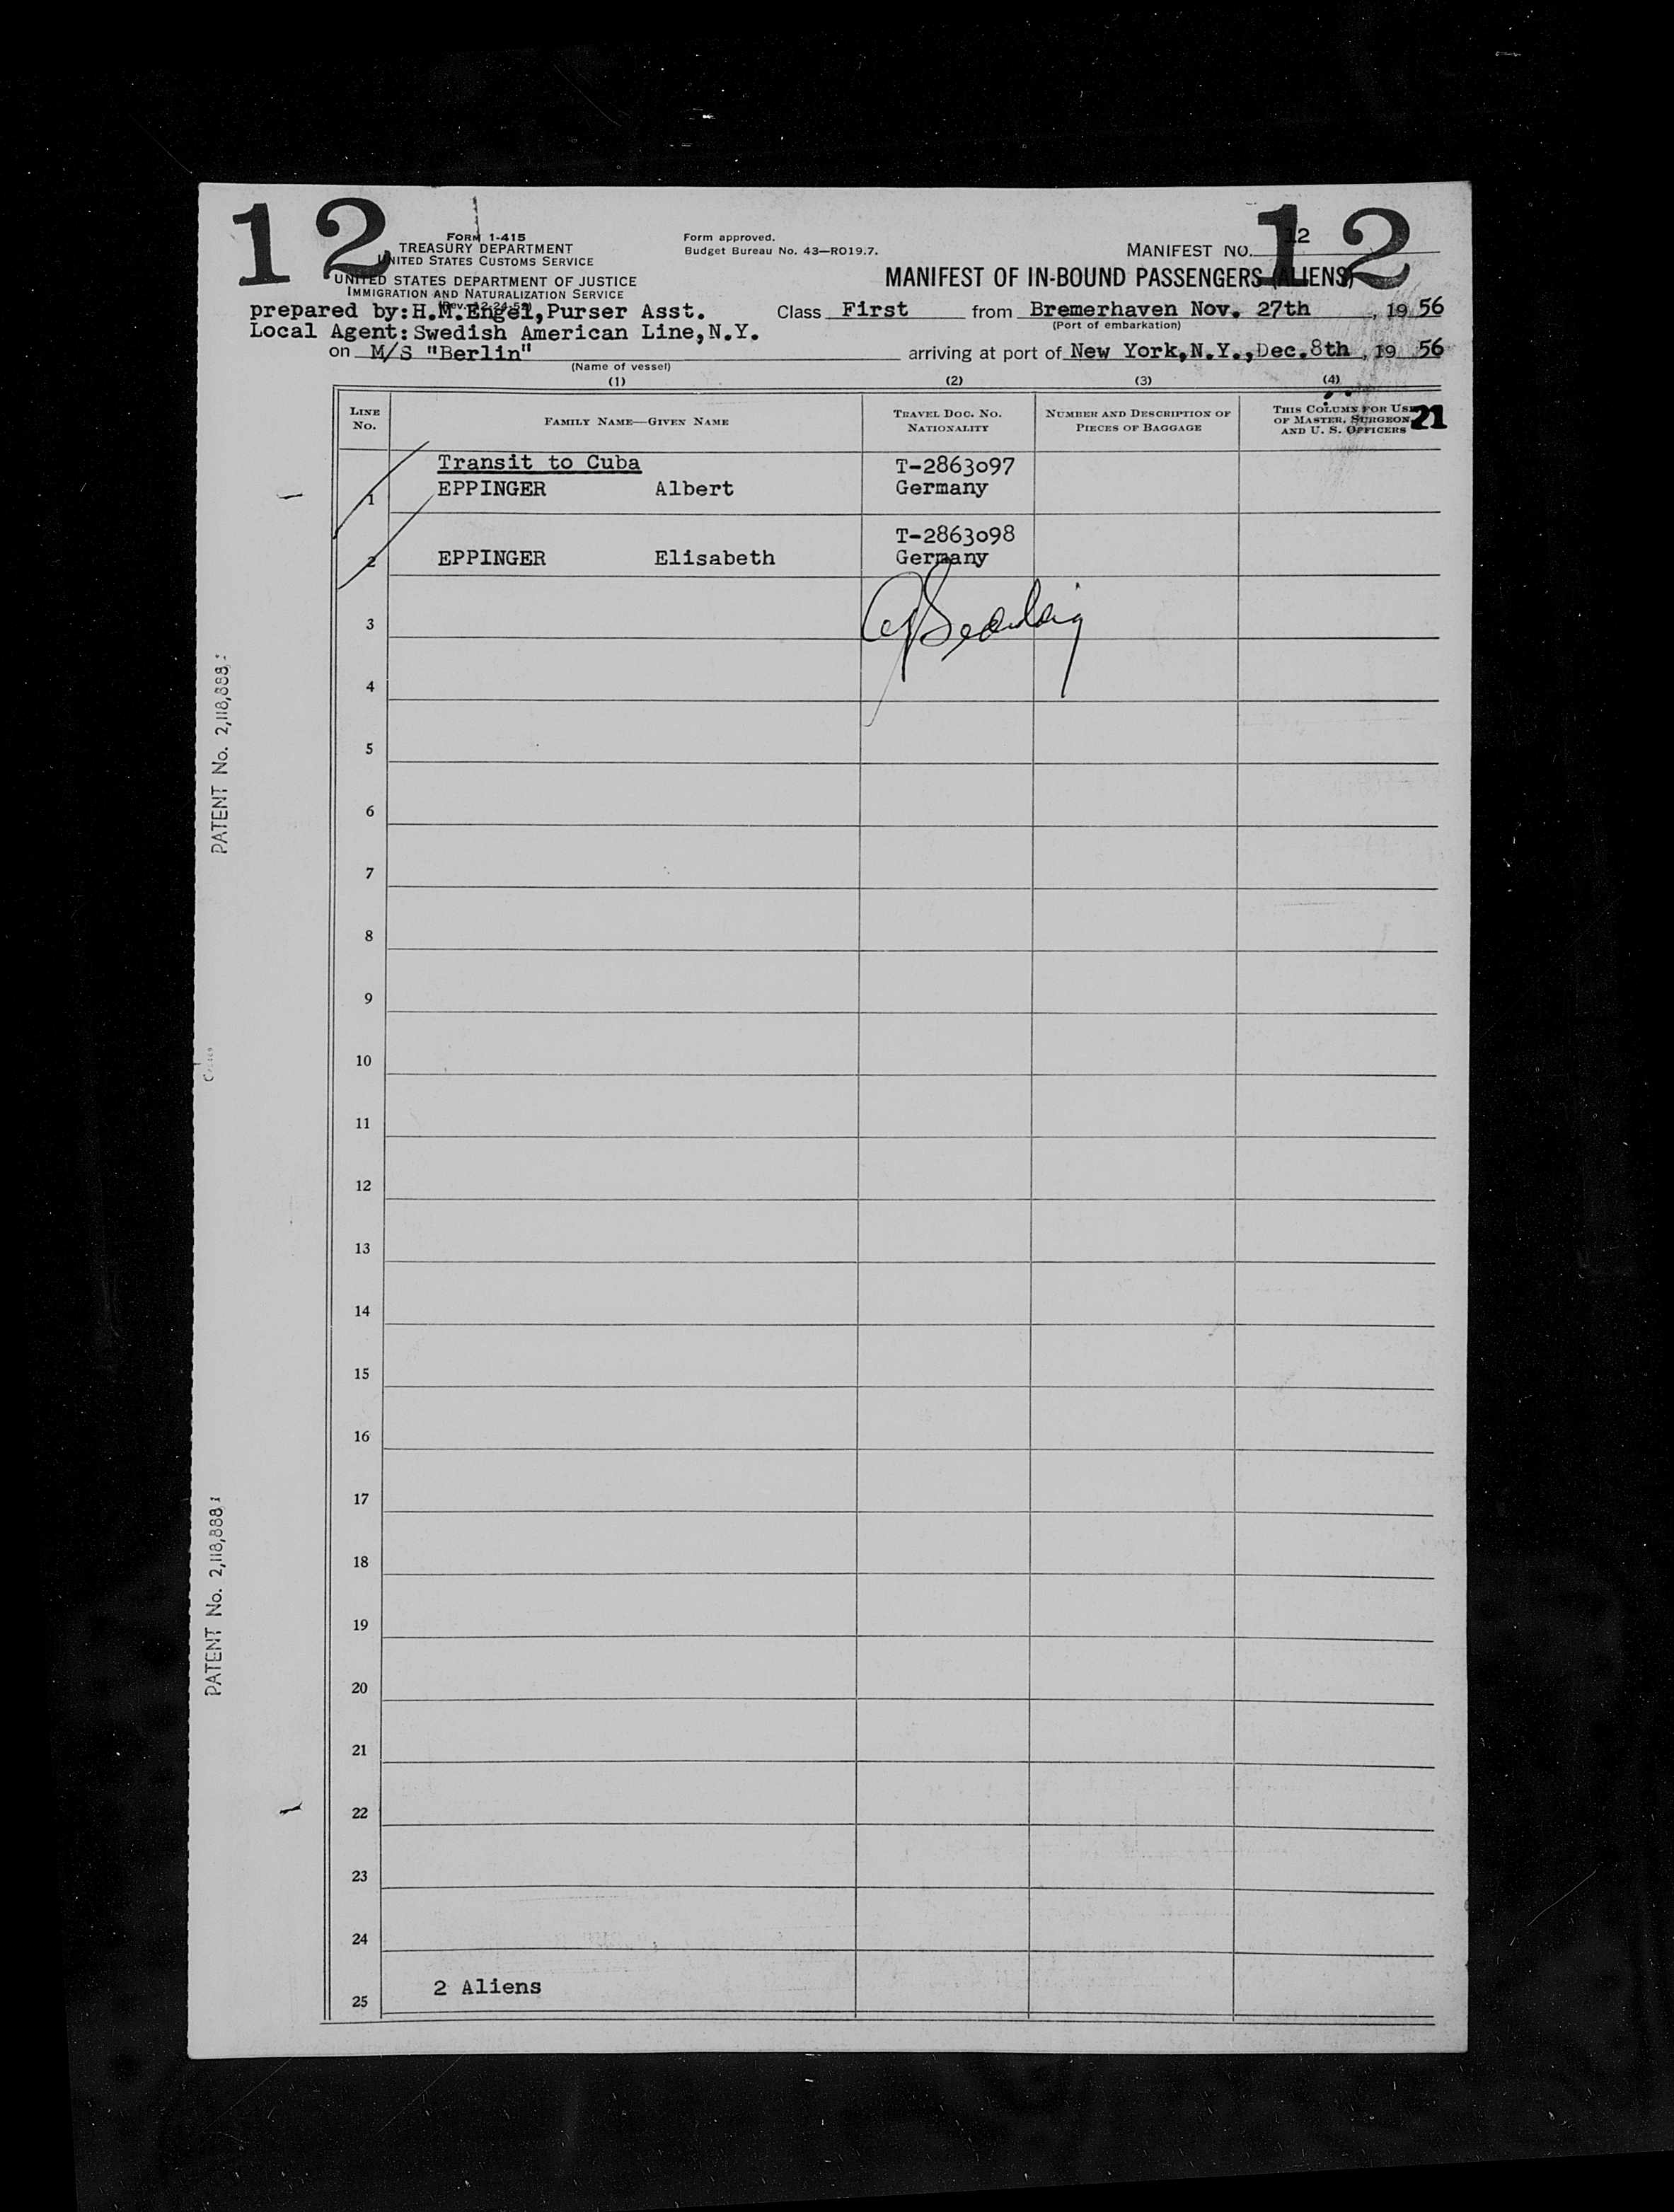 12
12
FORM I-415
TREASURY DEPARTMENT
UNITED STATES CUSTOMS SERVICE
UNITED STATES DEPARTMENT OF JUSTICE
IMMIGRATION AND NATURALIZATION SERVICE
(Rev. 12-24-52)
Form approved.
Budget Bureau No. 43—RO19.7.
MANIFEST NO. 12
MANIFEST OF IN-BOUND PASSENGERS (ALIENS)
prepared by: H.M.Engel, Purser Asst.
Class First from Bremerhaven Nov. 27th, 1956
(Port of embarkation)
Local Agent: Swedish American Line, N.Y.
on M/S "Berlin" arriving at port of New York, N.Y., Dec. 8th, 19 56
(Name of vessel)
(1) (2) (3) (4)
LINE NO.
FAMILY NAME—GIVEN NAME
TRAVEL DOC. NO. NATIONALITY
NUMBER AND DESCRIPTION OF PIECES OF BAGGAGE
THIS COLUMN FOR USE OF MASTER, SURGEON AND U. S. OFFICERS
21
Transit to Cuba T-2863097
1 EPPINGER Albert Germany
T-2863098
2 EPPINGER Elisabeth Germany
3
4
5
6
7
8
9
10
11
12
13
14
15
16
17
18
19
20
21
22
23
24
2 Aliens
25
PATENT No. 2,118,888
PATENT No. 2,118,888